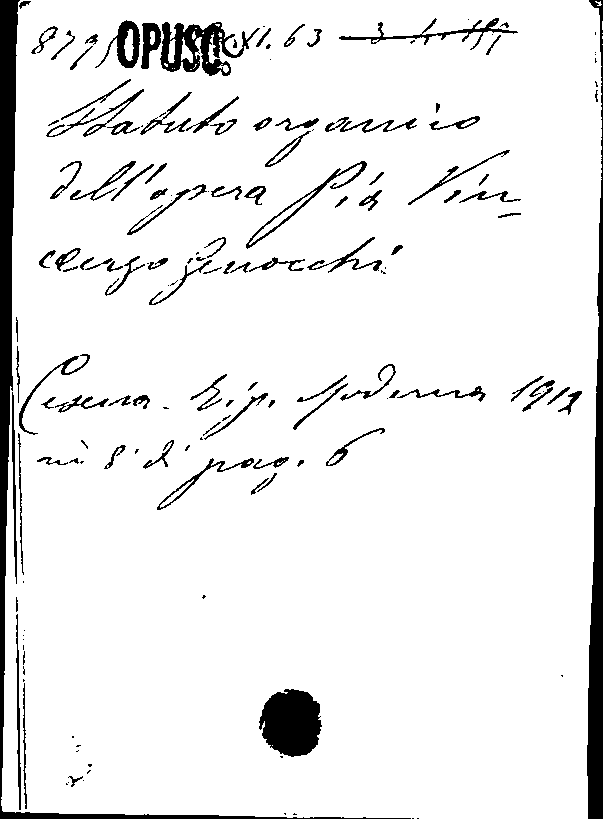 8795 OPUSC. XI. 63
Statuto organico
dell'opera Pia Vin-
cenzo Genocchi
Cesena. Tip. Moderna 1912
in 8° di pag. 6